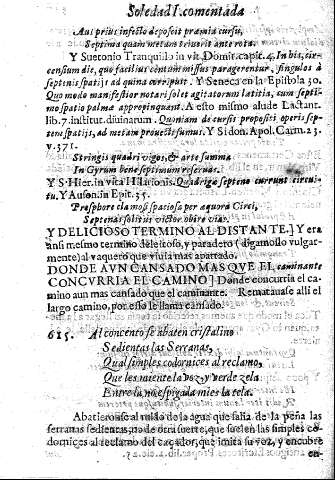 Soledad I. comentada
Aut prius infecto deposcit præmia cursu,
Septima quam metam triuerit ante rota.
Y Suetonio Tranquillo in vit. Domit. capit. 4. In bis, cir-
censium die, quo facilius centum missus paragerentur, singulos à
septenis spatijs ad quina corripuit. Y Seneca en la Epistola 30.
Quo modo manifestior notari solet agitatorum lætitia, cum septi-
mo spatio palmæ appropinquant. A esto mismo alude Lactant.
lib. 7. institut. diuinarum. Quoniam decursis propositi operis sep-
tem spatijs, ad metam prouecti sumus. Y Sidon. Apol. Carm. 23.
v. 371.
Stringis quadriiugos, & arte summa
In Gyrum bene septimum reseruas.
Y S. Hier. in vita Hilarionis. Quadrigæ septeno currunt circui-
tu. Y Auson. in Epit. 35.
Phosphore clamosi spatiosa per æquora Circi,
Septenas solitus victor obire vias.
Y DELICIOSO TERMINO AL DISTANTE.] Y era
ansi mesmo termino deleitoso, y paradero (digamoslo vulgar-
mente) al vaquero que viuia mas apartado.
DONDE AVN CANSADO MAS QVE EL caminante
CONCVRRIA EL CAMINO] Donde concurria el ca-
mino aun mas cansado que el caminante. Rematauase alli el
largo camino, por esso le llama cansado.
615. Al concento se abaten cristalino
Sedientas las Serranas,
Qual simples codornices al reclamo,
Que les miente la voz, y verde zela
Entre la no espigada mies la tela.
Abatieronse al ruido de la agua que salia de la peña las
serranas sedientas, no de otra suerte, que suelen las simples co-
dornices al reclamo del caçador, que imita su voz, y encubre
en-